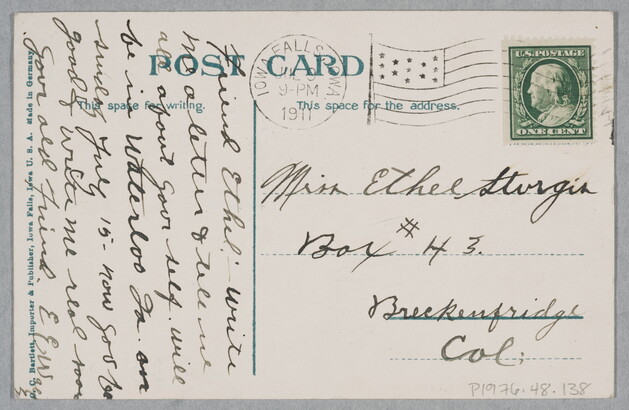 POST CARD
This space for writing.
This space for the address.
IOWA FALLS, IOWA
9-PM
1911
U.S. POSTAGE
ONE CENT
Friend Ethel:- Write
me a letter & tell me
all about your self. will
be in Waterloo Ia. on
sunday July 15- now you be
good & write me real soon
Your old friend
Miss Ethel Sturgis
Box # 43.
Breckenfridge
Col;
P1976.48.138
C. Bartlett, Importer & Publisher, Iowa Falls, Iowa U. S. A. Made in Germany.